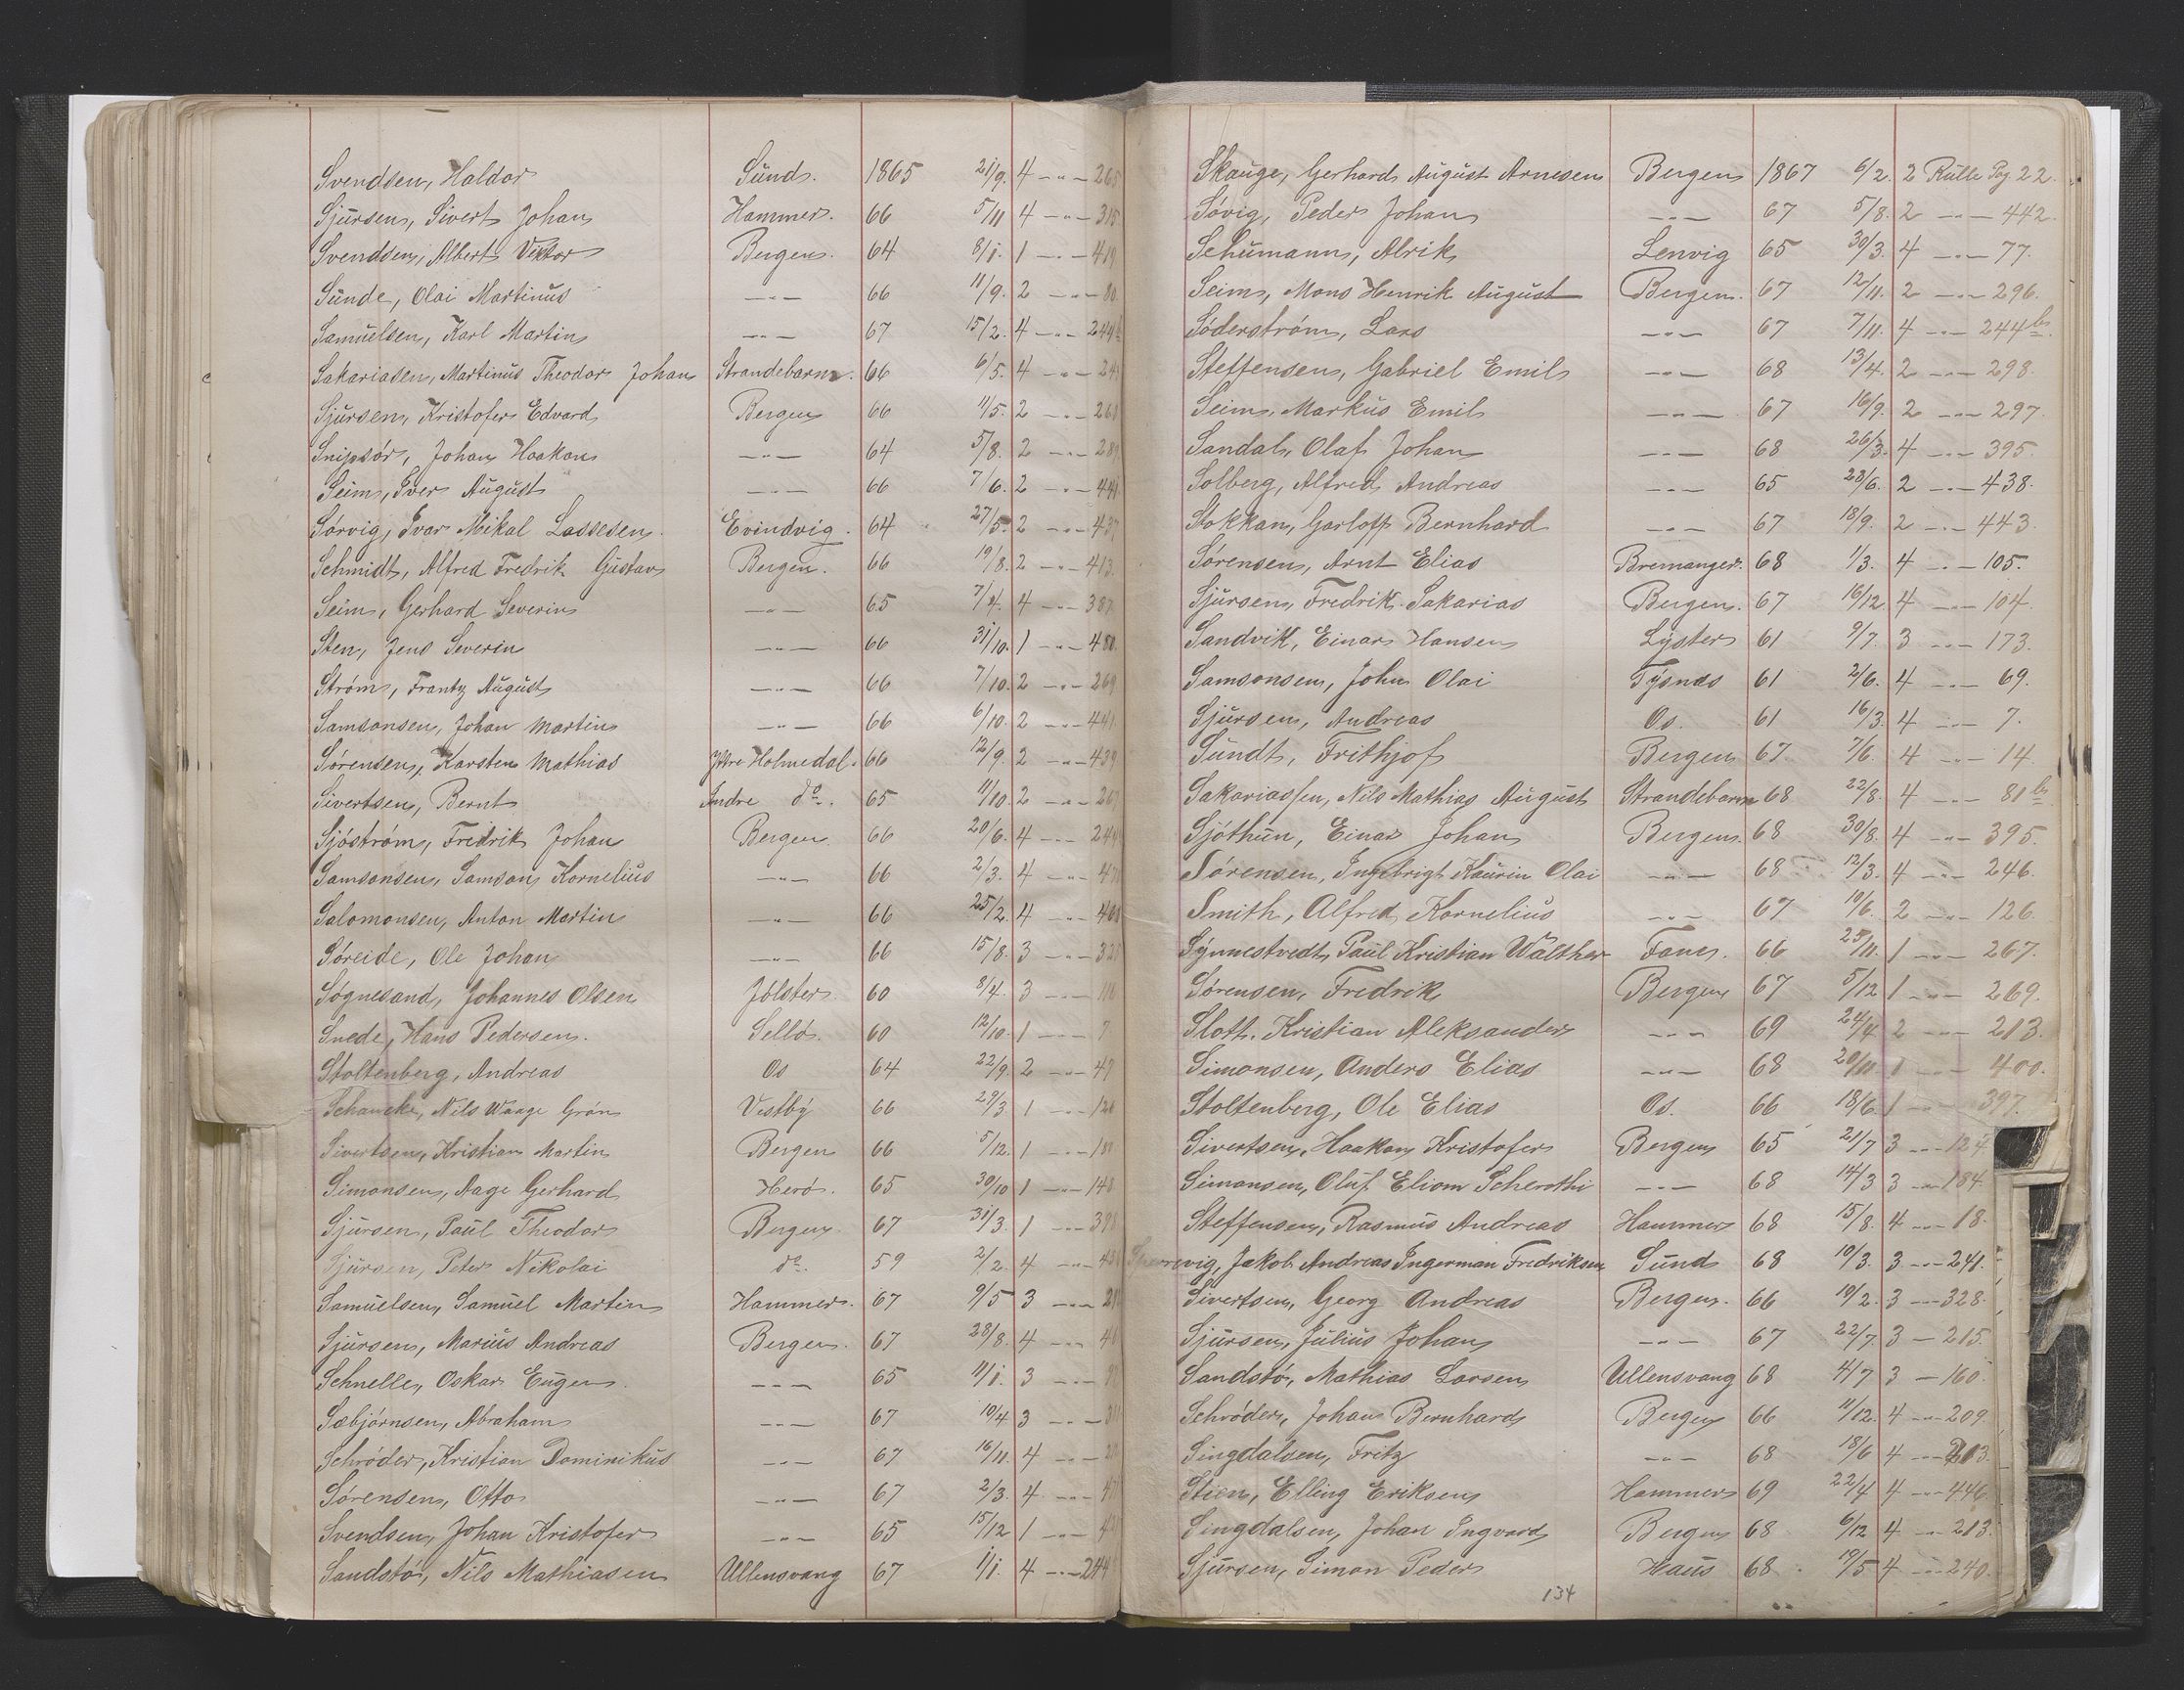 Svendsen, Haldor Sund. 1865 21/9. 4 -"- 265
Sjursen, Sivert Johan Hammer. 66 5/11 4 -"- 315
Svendsen, Albert Viktor Bergen. 64 8/1. 1 -"- 419
Sunde, Olai Martinus -"- 66 11/9. 2 -"- 80.
Samuelsen, Karl Martin -"- 67 15/2. 4 -"- 244
Sakariasen, Martinus Theodor Johan Strandebarm. 66 6/5. 4 -"-
Sjursen, Kristofer Edvard Bergen 66 11/5. 2 -"- 268
Snipsör, Johan Haakon -"- 64 5/8. 2 -"- 289
Seim, Iver August -"- 66 7/6. 2 -"- 441
Sörvig, Ivar Mikal Lassesen. Evindvig. 64 27/5. 2 -"- 437
Schmidt, Alfred Fredrik Gustav Bergen. 66 19/8. 2 -"- 413.
Seim, Gerhard Severin -"- 65 7/4. 4 -"- 387
Sten, Jens Severin -"- 66 31/10. 1 -"- 480.
Ström, Frantz August -"- 66 7/10. 2 -"- 269
Samsonsen, Johan Martin -"- 66 6/10. 2 -"- 441.
Sörensen, Karsten Mathias Yttre Holmedal. 66 12/9. 2 -"- 439
Sivertsen, Bernt Indre do. 65 11/10. 2 -"- 267
Sjöström, Fredrik Johan Bergen 66 20/6. 4 -"- 244
Samsonsen, Samson Kornelius -"- 66 2/3. 4 -"-
Salomonsen, Anton Martin -"- 66 25/2. 4 -"- 408
Söreide, Ole Johan -"- 66 15/8. 3 -"- 325
Sögnesand, Johannes Olsen Jölster. 60 8/4. 3 -"- 116
Snede, Hans Pedersen. Sellö. 60 12/10. 1 -"- 7
Stoltenberg, Andreas Os 64 22/9. 2 -"- 49
Schancke, Nils Waage Grön Vestby 66 29/3 1 -"- 120
Sivertsen, Kristian Martin Bergen 66 5/12. 1 -"-
Simonsen, Aage Gerhard Herö. 65 30/10 1 -"- 148
Sjursen, Paul Theodor Bergen. 67 31/3. 1 -"- 398
Sjursen, Peter Nikolai do. 59 2/2. 4 -"-
Samuelsen, Samuel Martin Hammer. 67 9/5 3 -"-
Sjursen, Marius Andreas Bergen. 67 28/8. 4 -"-
Schnelle, Oskar Eugen. -"- 65 11/1. 3 -"-
Sæbjörnsen, Abraham -"- 67 10/4 3 -"-
Schröder, Kristian Dominikus -"- 67 16/11. 4 -"-
Sörensen, Otto -"- 67 2/3. 4 -"-
Svendsen, Johan Kristofer -"- 65 15/12 1 -"-
Sandstö, Nils Mathiasen Ullensvang 67 1/1. 4 -"- 244
Skauge, Gerhard August Arnesen Bergen 1867 6/2. 2 Rulle Pag. 22.
Sövig, Peder Johan -"- 67 5/8. 2 -"- 442.
Schumann, Alrik Lenvig 65 30/3. 4 -"- 77.
Seim, Mons Henrik August Bergen. 67 12/11. 2 -"- 296.
Söderström, Lars -"- 67 7/11. 4 -"- 244 b.
Steffensen, Gabriel Emil -"- 68 13/4. 2 -"- 298.
Seim, Markus Emil -"- 67 16/9. 2 -"- 297.
Sandal, Olaf Johan -"- 68 26/3. 4 -"- 395.
Solberg, Alfred Andreas -"- 65 23/6. 2 -"- 438.
Stokkan, Garloff Bernhard -"- 67 18/9. 2 -"- 443.
Sörensen, Arnt Elias Bremanger. 68 1/3. 4 -"- 105.
Sjursen, Fredrik Sakarias Bergen. 67 16/12 4 -"- 104.
Sandvik, Einar Hansen Lyster 61 9/7. 3 -"- 173.
Samsonsen, John Olai Tysnæs 61 2/6. 4 -"- 69.
Sjursen, Andreas Os. 61 16/3. 4 -"- 7.
Sundt, Frithjof Bergen 67. 7/6. 4 -"- 14.
Sakariassen, Nils Mathias August Strandebarm 68 22/8. 4 -"- 81 b
Sjöthun, Einar Johan Bergen. 68 30/8. 4 -"- 395.
Sörensen, Ingebrigt Kaurin Olai -"- 68 12/3. 4 -"- 246.
Smith, Alfred Kornelius -"- 67 10/6. 2 -"- 126.
Synnestvedt, Paul Kristian Walther Fane. 66 25/11. 1 -"- 267.
Sörensen, Fredrik Bergen 67 5/12 1 -"- 269.
Slott, Kristian Aleksander -"- 69 24/4 2 -"- 213.
Simonsen, Anders Elias -"- 68 20/11. 1 -"- 400.
Stoltenberg, Ole Elias Os. 66 18/6 1 -"- 397.
Sivertsen, Haakon Kristofer Bergen 65 21/7 3 -"- 124
Simonsen, Oluf Eliom Scherothi -"- 68 14/3 3 -"- 184
Steffensen, Rasmus Andreas Hammer 68 15/8. 4 -"- 18.
Jakob Andreas Ingerman Fredriksen Sund 68 10/3. 3 -"- 241.
Sivertsen, Georg Andreas Bergen. 66 19/2. 3 -"- 328.
Sjursen, Julius Johan -"- 67 22/7. 3 - 215.
Sandstö, Mathias Larsen Ullensvang 68 4/7 3 - 160.
Schröder, Johan Bernhard Bergen 66 11/12. 4 -"- 209.
Singdalsen, Fritz -"- 68 18/6 4 -"- 213.
Stien, Elling Eriksen Hammer 69 22/4 4 -"- 446
Singdalsen, Johan Ingvard Bergen 68 6/12 4 -"- 213.
Sjursen, Simon Peder Haus 68. 19/5 4 -"- 240.
134